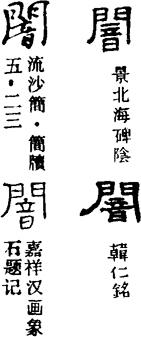 闇
景北海碑陰
闇
韓仁銘
闇
流沙簡·簡牘
五·二三
闇
嘉祥汉画象
石题记